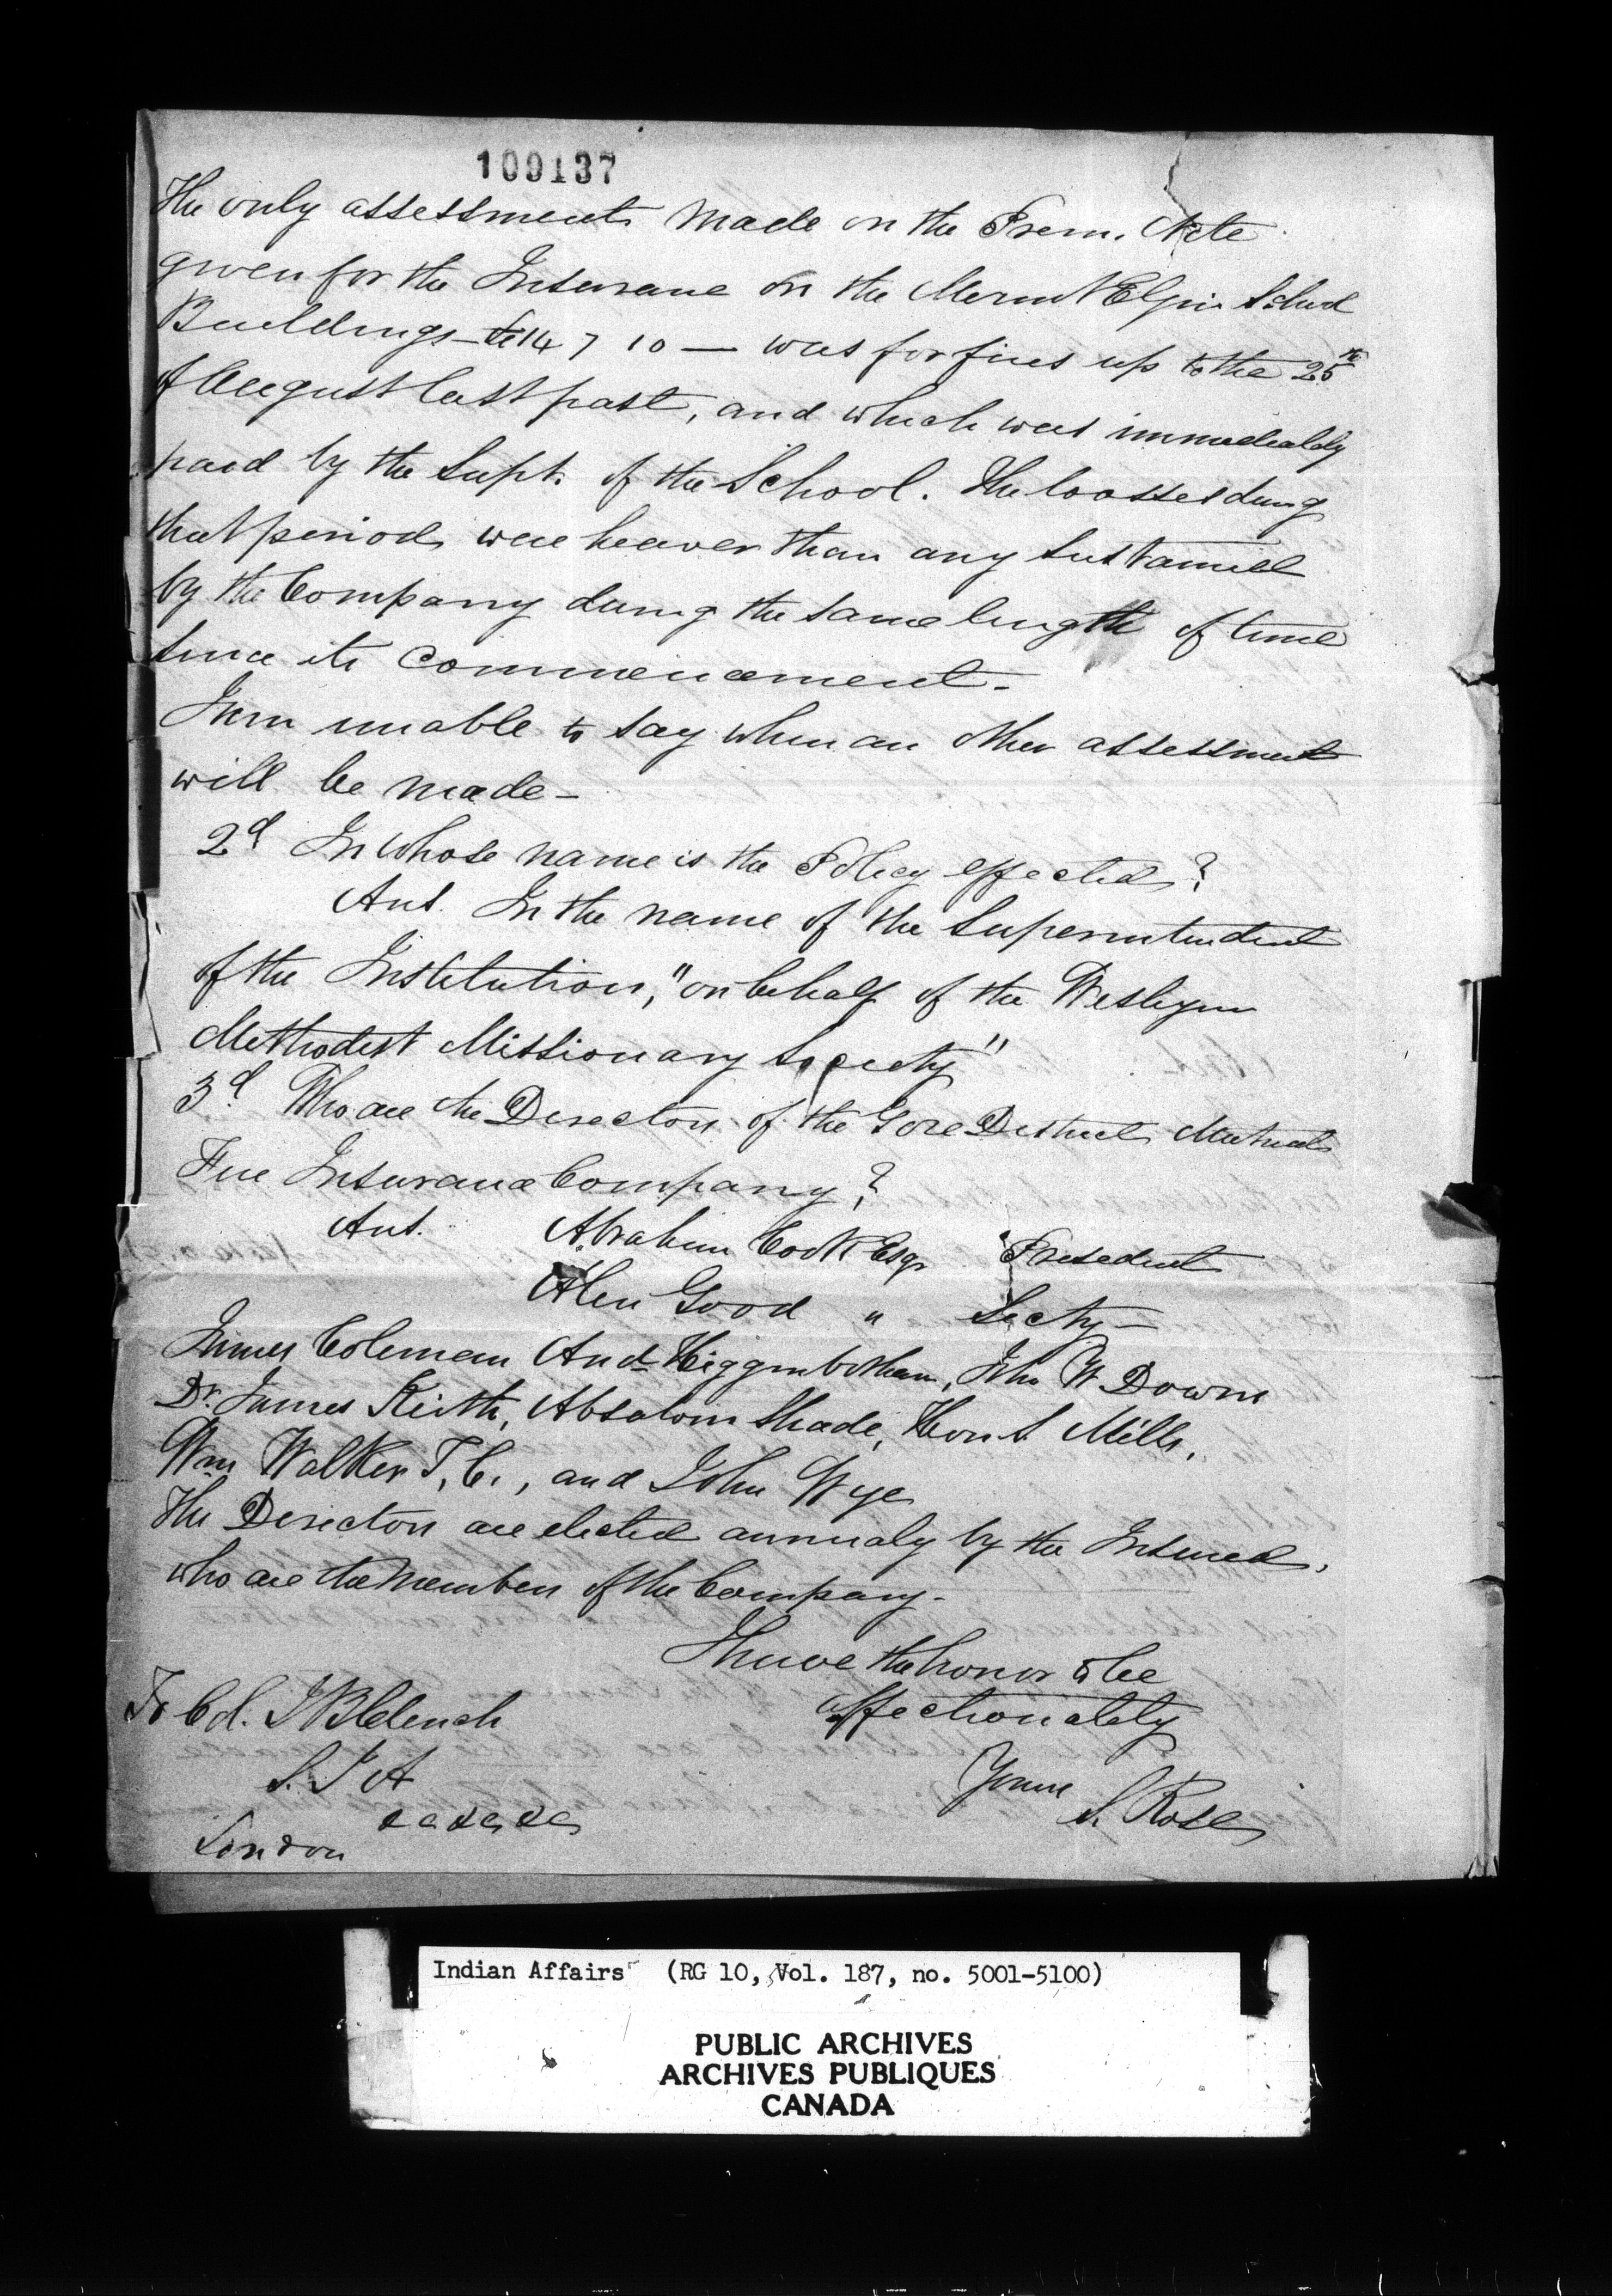 109137
The only assessment made on the Prem. Note
given for the Insurance on the Mount Elgin School
Buildings — £14 7 10 — was for fires up to the 25th
of August last past, and which was immediately
paid by the Supt. of the School. The loosses during
that period, were heaver than any sustained
by the Company during the same length of time
since its commencement.
I am unable to say when an other assessment
will be made —
2d In whose name is the Policy effected?
Ans. In the name of the Superintendent
of the Institution, "on behalf of the Wesleyan
Methodist Missionary Society"
3d. Who are the Directors of the Gore District Mutual
Fire Insurance Company?
Ans. Abraham Cook Esqr President
Alen Good " Secty —
James Coleman And Higginbotham, Jno W Downs
Dr. James Keith, Absalom Shade, Hon S. Mills,
Wm Walker T. C., and John Wye
The Directors are elected annualy by the Insured,
who are the members of the Company.
I have the honor to be
affectionately
To Col. J B Clench
Yours
S. I A
S. Rose
London
Indian Affairs (RG 10, Vol. 187, no. 5001-5100)
PUBLIC ARCHIVES
ARCHIVES PUBLIQUES
CANADA